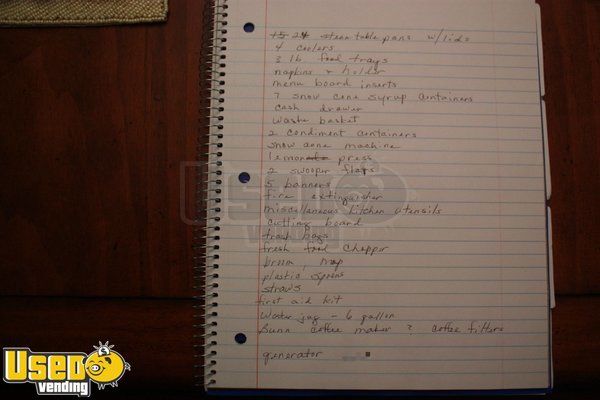 24 steam table pans w/lids
4 coolers
3 lb food trays
napkins & holder
menu board inserts
7 snow cone syrup containers
cash drawer
waste basket
2 condiment containers
snow cone machine
lemon press
2 swooper flags
5 banners
fire extinguisher
miscellaneous kitchen utensils
cutting board
trash bags
fresh food chopper
broom, mop
plastic spoons
straws
first aid kit
Water jug - 6 gallon
Bunn coffee maker ? coffee filters
generator
USED
VENDING
USED
VENDING